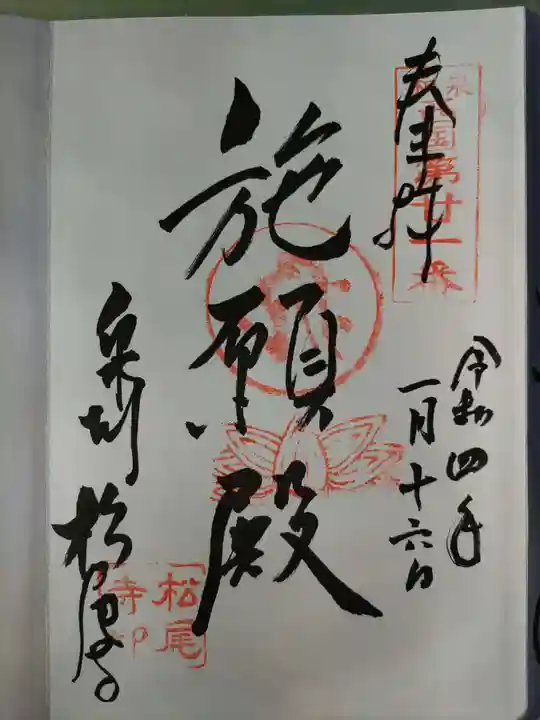 奉拝
西国第廿一番
令和四年
一月十六日
施願殿
泉州 松尾寺
松尾
寺印